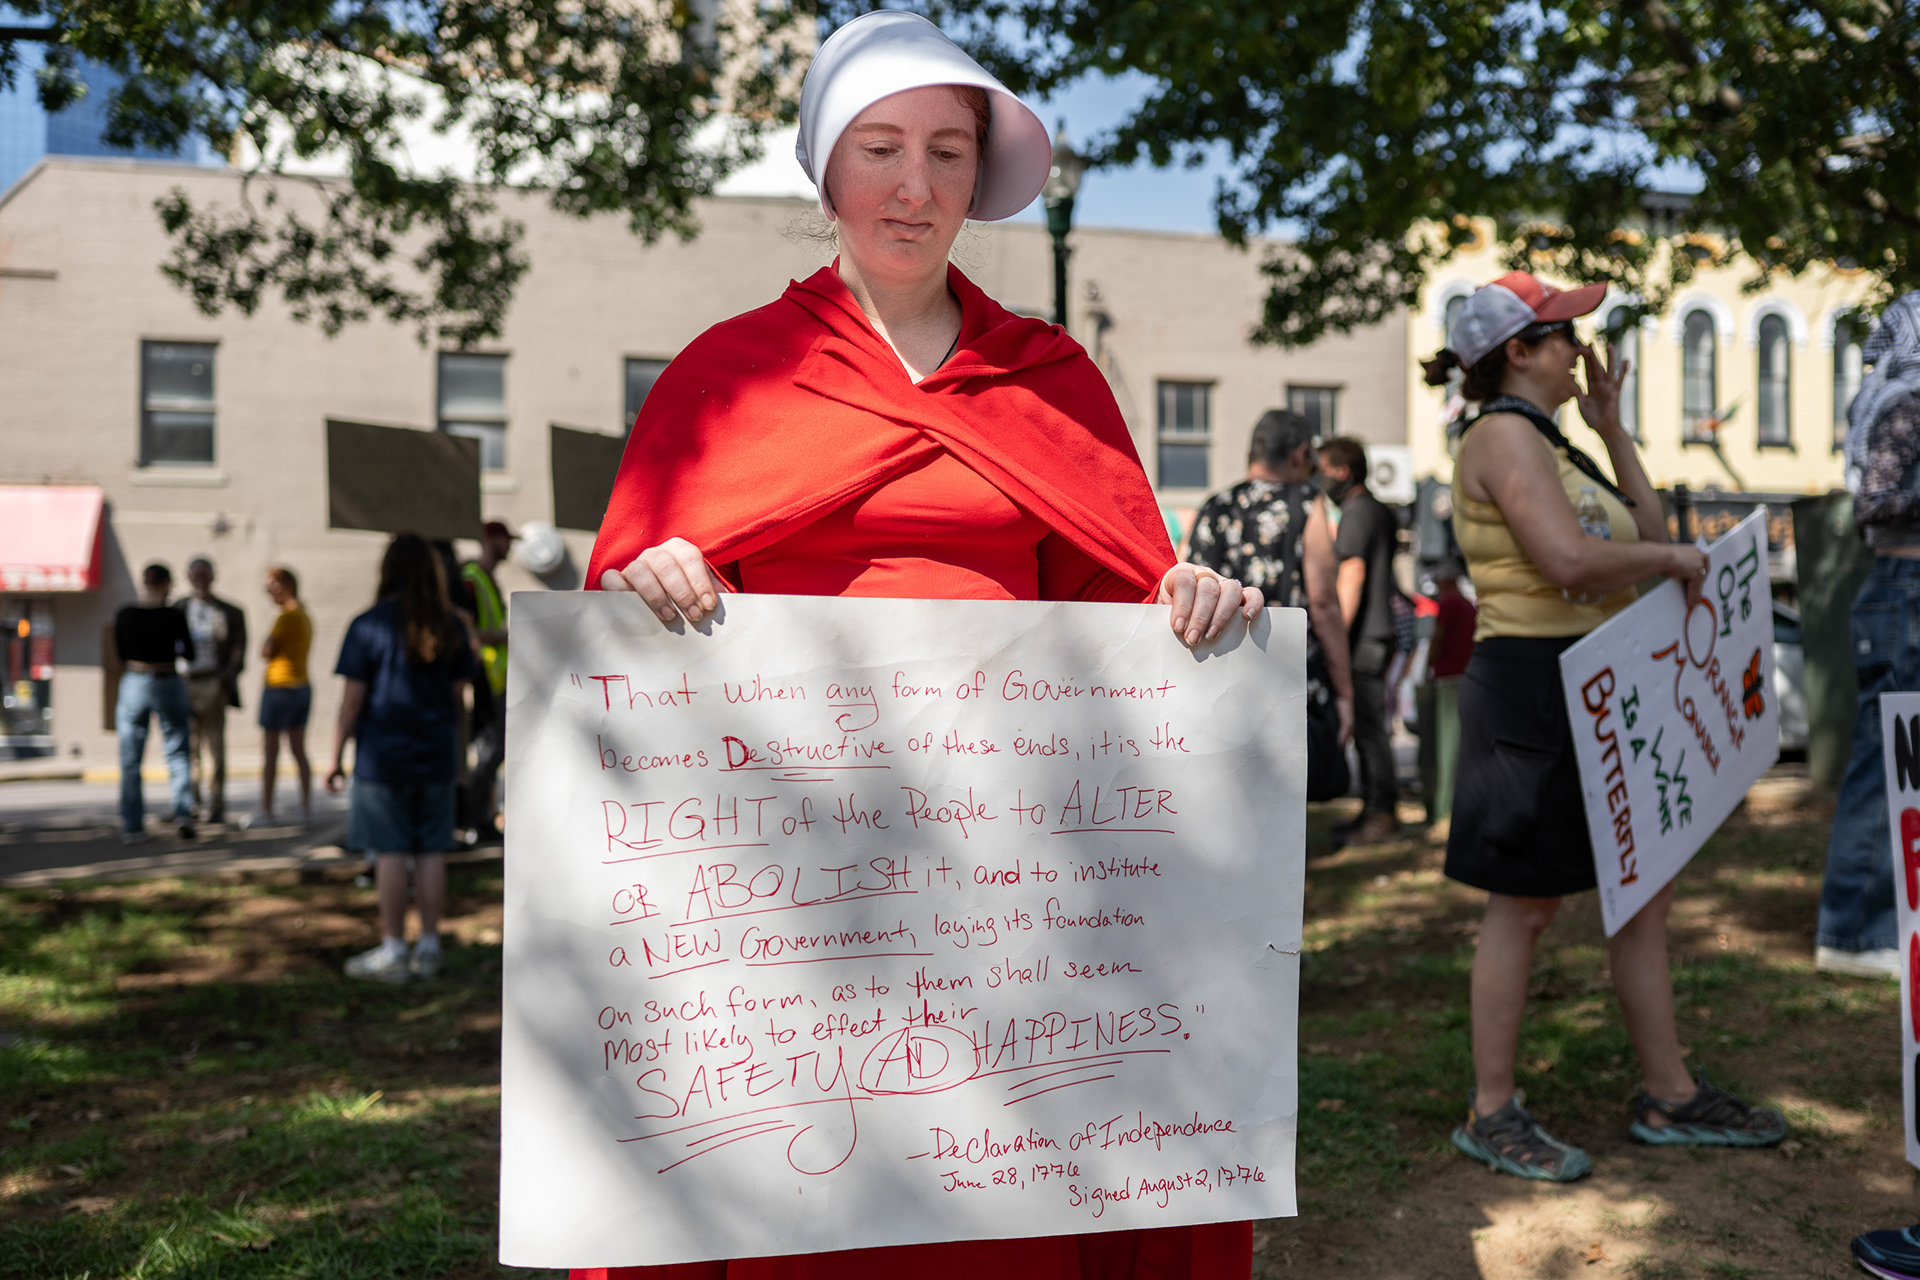 "That when any form of Government
becomes Destructive of these ends, it is the
RIGHT of the People to ALTER
or ABOLISH it, and to institute
a NEW Government, laying its foundation
on such form, as to them shall seem
most likely to effect their
SAFETY AND HAPPINESS."
—Declaration of Independence
June 28, 1776
Signed August 2, 1776
The
Only
ORANGE
MONARCH
WE
WANT
Is A
BUTTERFLY